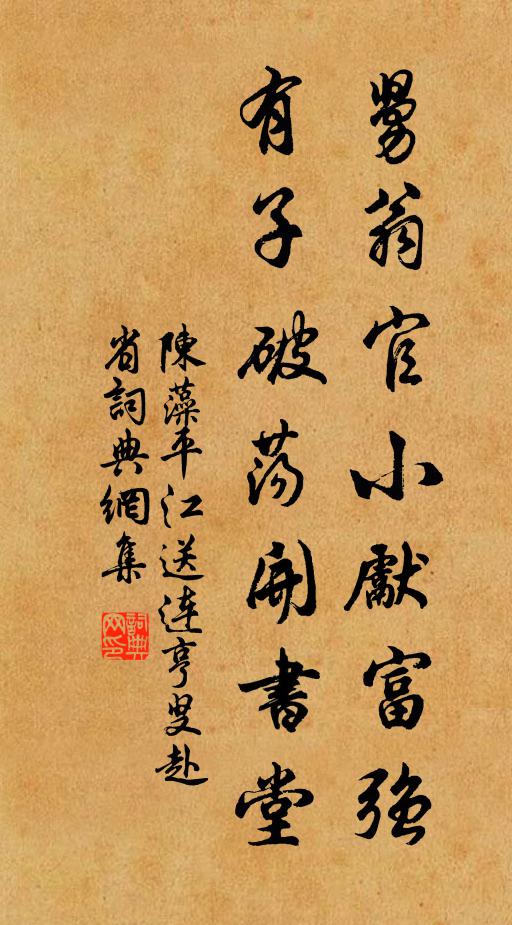 舅翁官小獻富強
有子破蕩開書堂
陳藻平江送連亨叟赴
省詞典網集
詞典
网印